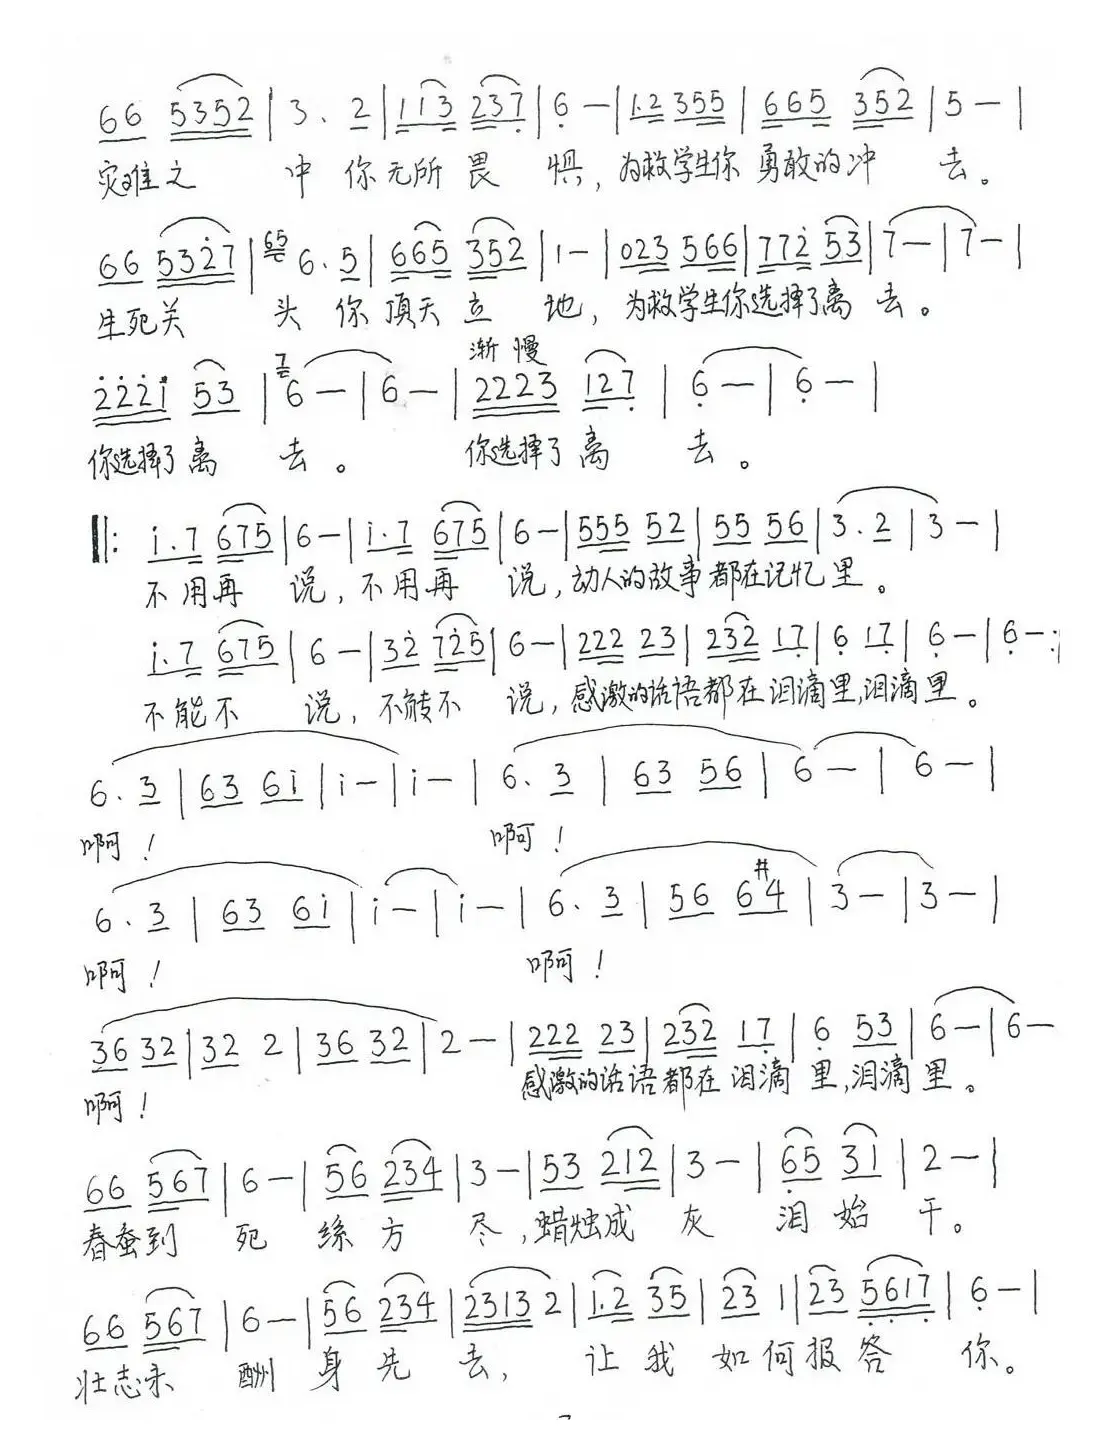 66 5352 | 3. 2 | 113 237 | 6 — | 1.2 355 | 665 352 | 5 — |
灾难之 中 你无所畏 惧，为救学生你 勇敢的冲 去。
66 5327 | 65 6. 5 | 665 352 | 1 — | 023 566 | 772 53 | 7 — | 7 — |
生死关 头 你 顶天立 地，为救学生你选择了离 去。
渐慢
2221 53 | 7 6 — | 6 — | 2223 127 | 6 — | 6 — |
你选择了离 去。 你选择了离 去。
‖: i. 7 675 | 6 — | i. 7 675 | 6 — | 555 52 | 55 56 | 3. 2 | 3 — |
不用再 说，不用再 说，动人的故事都在记忆里。
i. 7 675 | 6 — | 32 725 | 6 — | 222 23 | 232 17 | 6 17 | 6 — | 6 — :|
不能不 说，不能不 说，感激的话语都在泪滴里，泪滴里。
6. 3 | 63 6i | i — | i — | 6. 3 | 63 56 | 6 — | 6 — |
啊！ 啊！
6. 3 | 63 6i | i — | i — | 6. 3 | 56 6#4 | 3 — | 3 — |
啊！ 啊！
36 32 | 32 2 | 36 32 | 2 — | 222 23 | 232 17 | 6 53 | 6 — | 6 —
啊！ 感激的话语都在泪滴里，泪滴里。
66 567 | 6 — | 56 234 | 3 — | 53 212 | 3 — | 65 31 | 2 — |
春蚕到 死 丝方 尽，蜡烛成 灰 泪始 干。
66 567 | 6 — | 56 234 | 2313 2 | 1.2 35 | 23 1 | 23 5617 | 6 — |
壮志未 酬 身先 去，让我 如何报答 你。